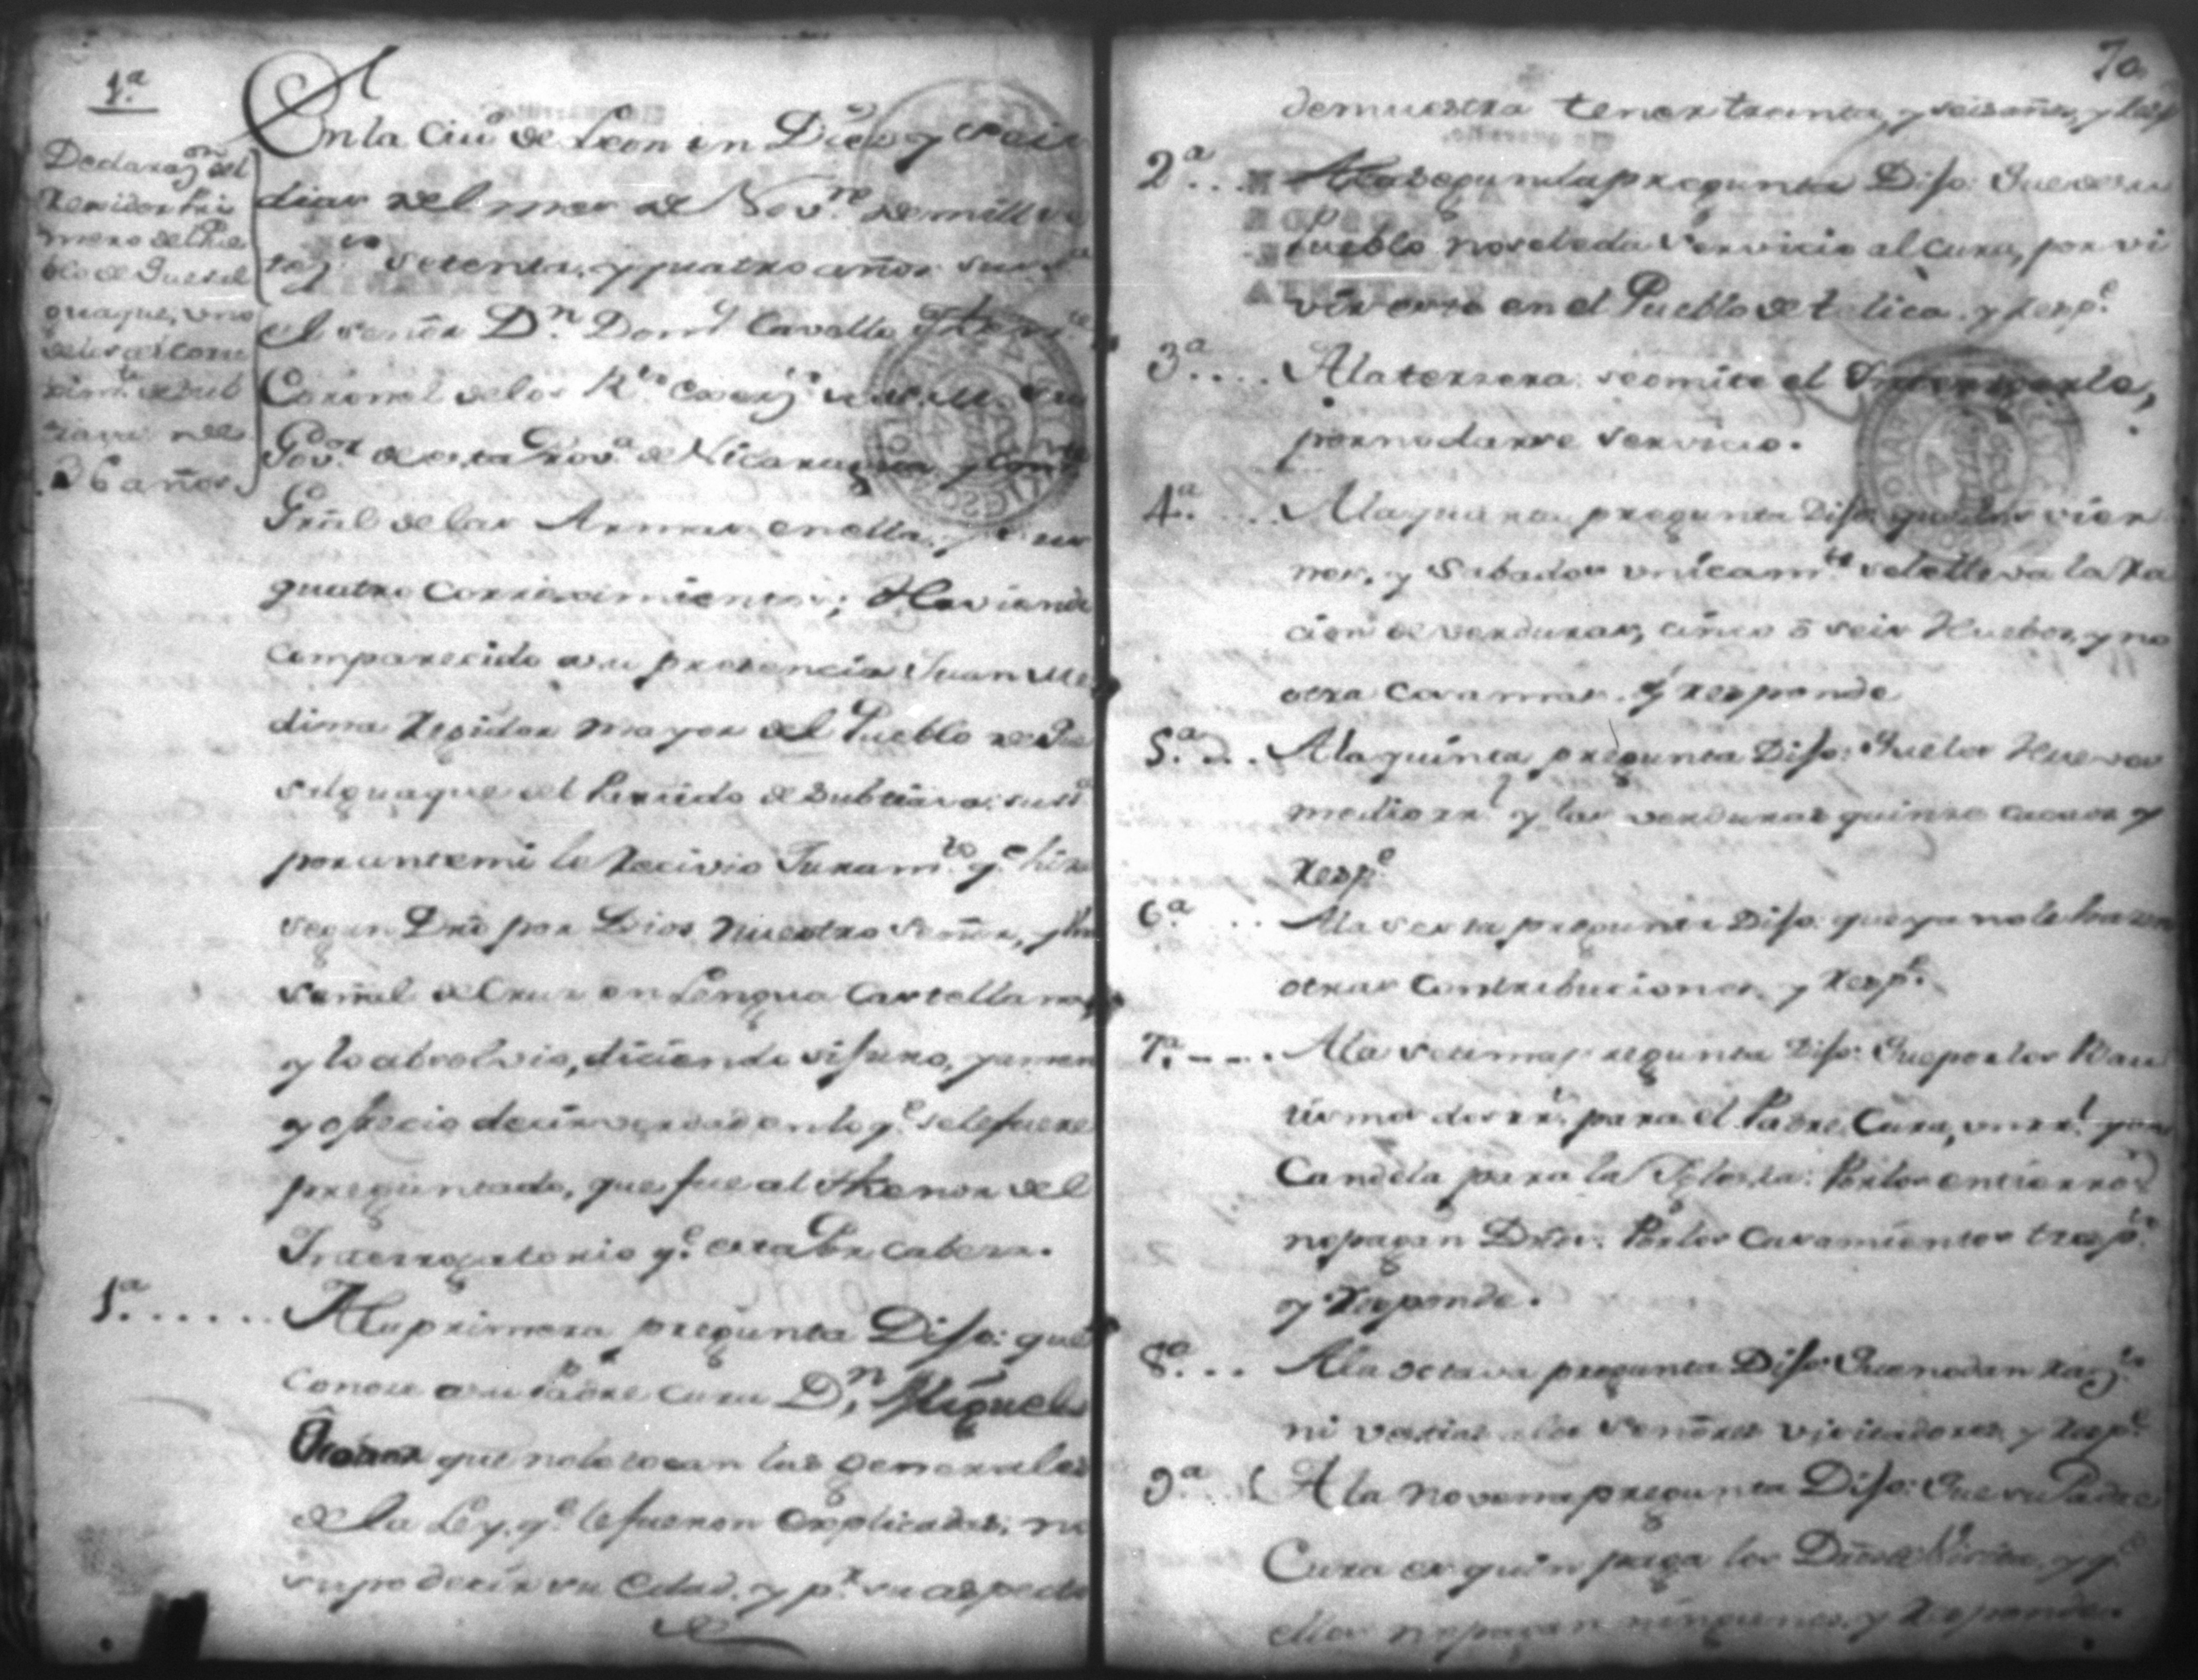 1.ª
Declaraz.on del
Regidor Pri
mero del Pue
blo de Quesal
guaque, uno
de los del Corre
gim.to de Sub
tiava de
36 años.
En la Ciu.d de Leon en Diez y seis
dias del mes de Nov.re de mill se
tez.os setenta, y quatro años su s.a
el señor D.n Dom.o Cavello
Coronel de los R.s Exerz.s de S. M. su
Gov.or de esta Prov.a de Nicaragua y Com.te
Gral de las Armas en ella, y sus
quatro Correximientos; Haviendo
Comparecido a su presencia Juan Me
dina Regidor mayor del Pueblo de Que
salguaque del Partido de Subtiava: su s.a
por ante mi le Recivio Juram.to q.e hizo
segun Dro por Dios Nuestro Señor, y una
señal de Cruz en Lengua Castellana,
y lo absolvio, diciendo si juro, y amen
y ofrecio decir verdad en lo q.e se le fuere
preguntado, que fue al Thenor del
Interrogatorio q.e esta Por Cabeza.
1.ª...... A la primera pregunta Dijo: que
Conoce a su Padre Cura D.n Miguel
que no le tocan las Generales
de la Ley, q.e le fueron Explicadas; no
supo decir su Edad, y p.r su aspecto
70
demuestra tener treinta, y seis años, y resp.e
2.ª... A la segunda pregunta Dijo: Que de su
Pueblo no se le da Servicio al Cura, por vi
vir este en el Pueblo de telica, y resp.e
3.ª.... A la tersera: se omite el
por no darse servicio.
4.ª.... A la quarta pregunta Dijo que los vier
nes, y Sabados unicam.te se le lleva la Ra
cion de verduras, cinco ò seis Huebos, y no
otra Cosa mas. y Responde
5.ª... A la quinta pregunta Dijo: Que los Huevos
medio rr.l y las verduras quinse cacaos y
Resp.e
6.ª... A la sexta pregunta Dijo: que ya no le hazen
otras Contribuciones, y Resp.e
7.ª---. A la setima pregunta Dijo: Que por los Bau
tismos dos rr.s para el Padre Cura, un rr.l y una
Candela para la Iglesia: Por los entierros
no pagan Dros. Por los Casamientos tres p.s
y Responde.
8.ª... A la octava pregunta Dijo: Que no dan Raz.s
ni vestias a los Señores visitadores, y Resp.e
9.ª.. A la novena pregunta Dijo: Que su Padre
Cura es quien paga los Dros de Visita, y q.e
ellos no pagan ningunos, y Responde.